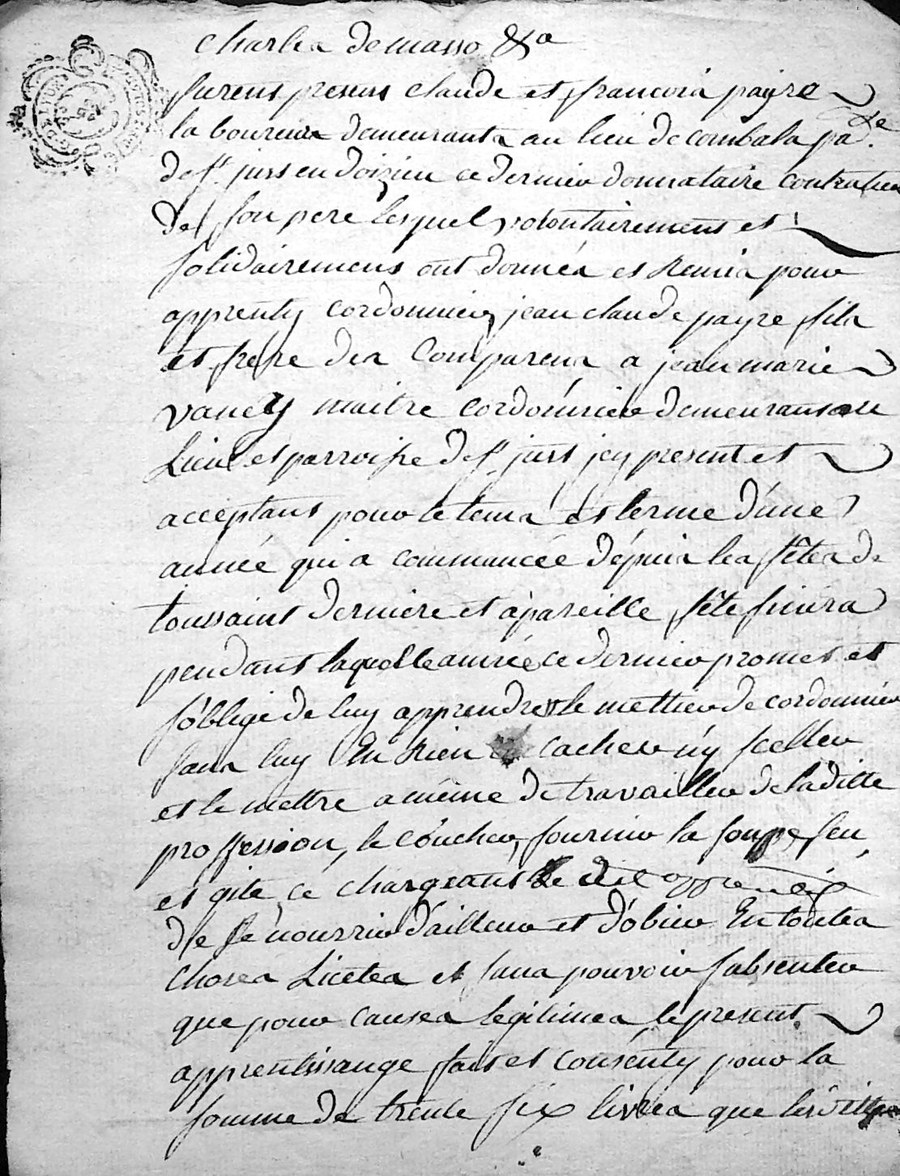 charles demasso &a
furent presens claude et francois payre
laboureurs demeurants au lieu de combala pa.se
de st just en doizieu ce dernier donnataire contractuel
de son pere lesquel volontairement et
solidairement ont donnés et remis pour
apprenty cordonnier jean claude payre fils
et frere des comparens a jean marie
vanel maitre cordonnier demeurant au
Lieu et parroisse de st just icy present et
acceptant pour le tems et terme d'une
année qui a commancée dépuis les fêtes de
toussaint derniere et à pareille fête finira
pendant laquelle année ce dernier promet et
s'oblige de luy apprendre le mettier de cordonnier
sans luy En Rien cacher n'y sceller
et le mettre a même de travailler de laditte
proffession, le coucher, fournir la soupe, feu,
et gite, ce chargeant le dit apprentix
de se nourrir d'ailleur et d'obéir En toutes
choses Licites et sans pouvoir s'absenter
que pour causes légitimes, le present
apprentissange fait et consenty pour la
somme de trente six livres que lesdits